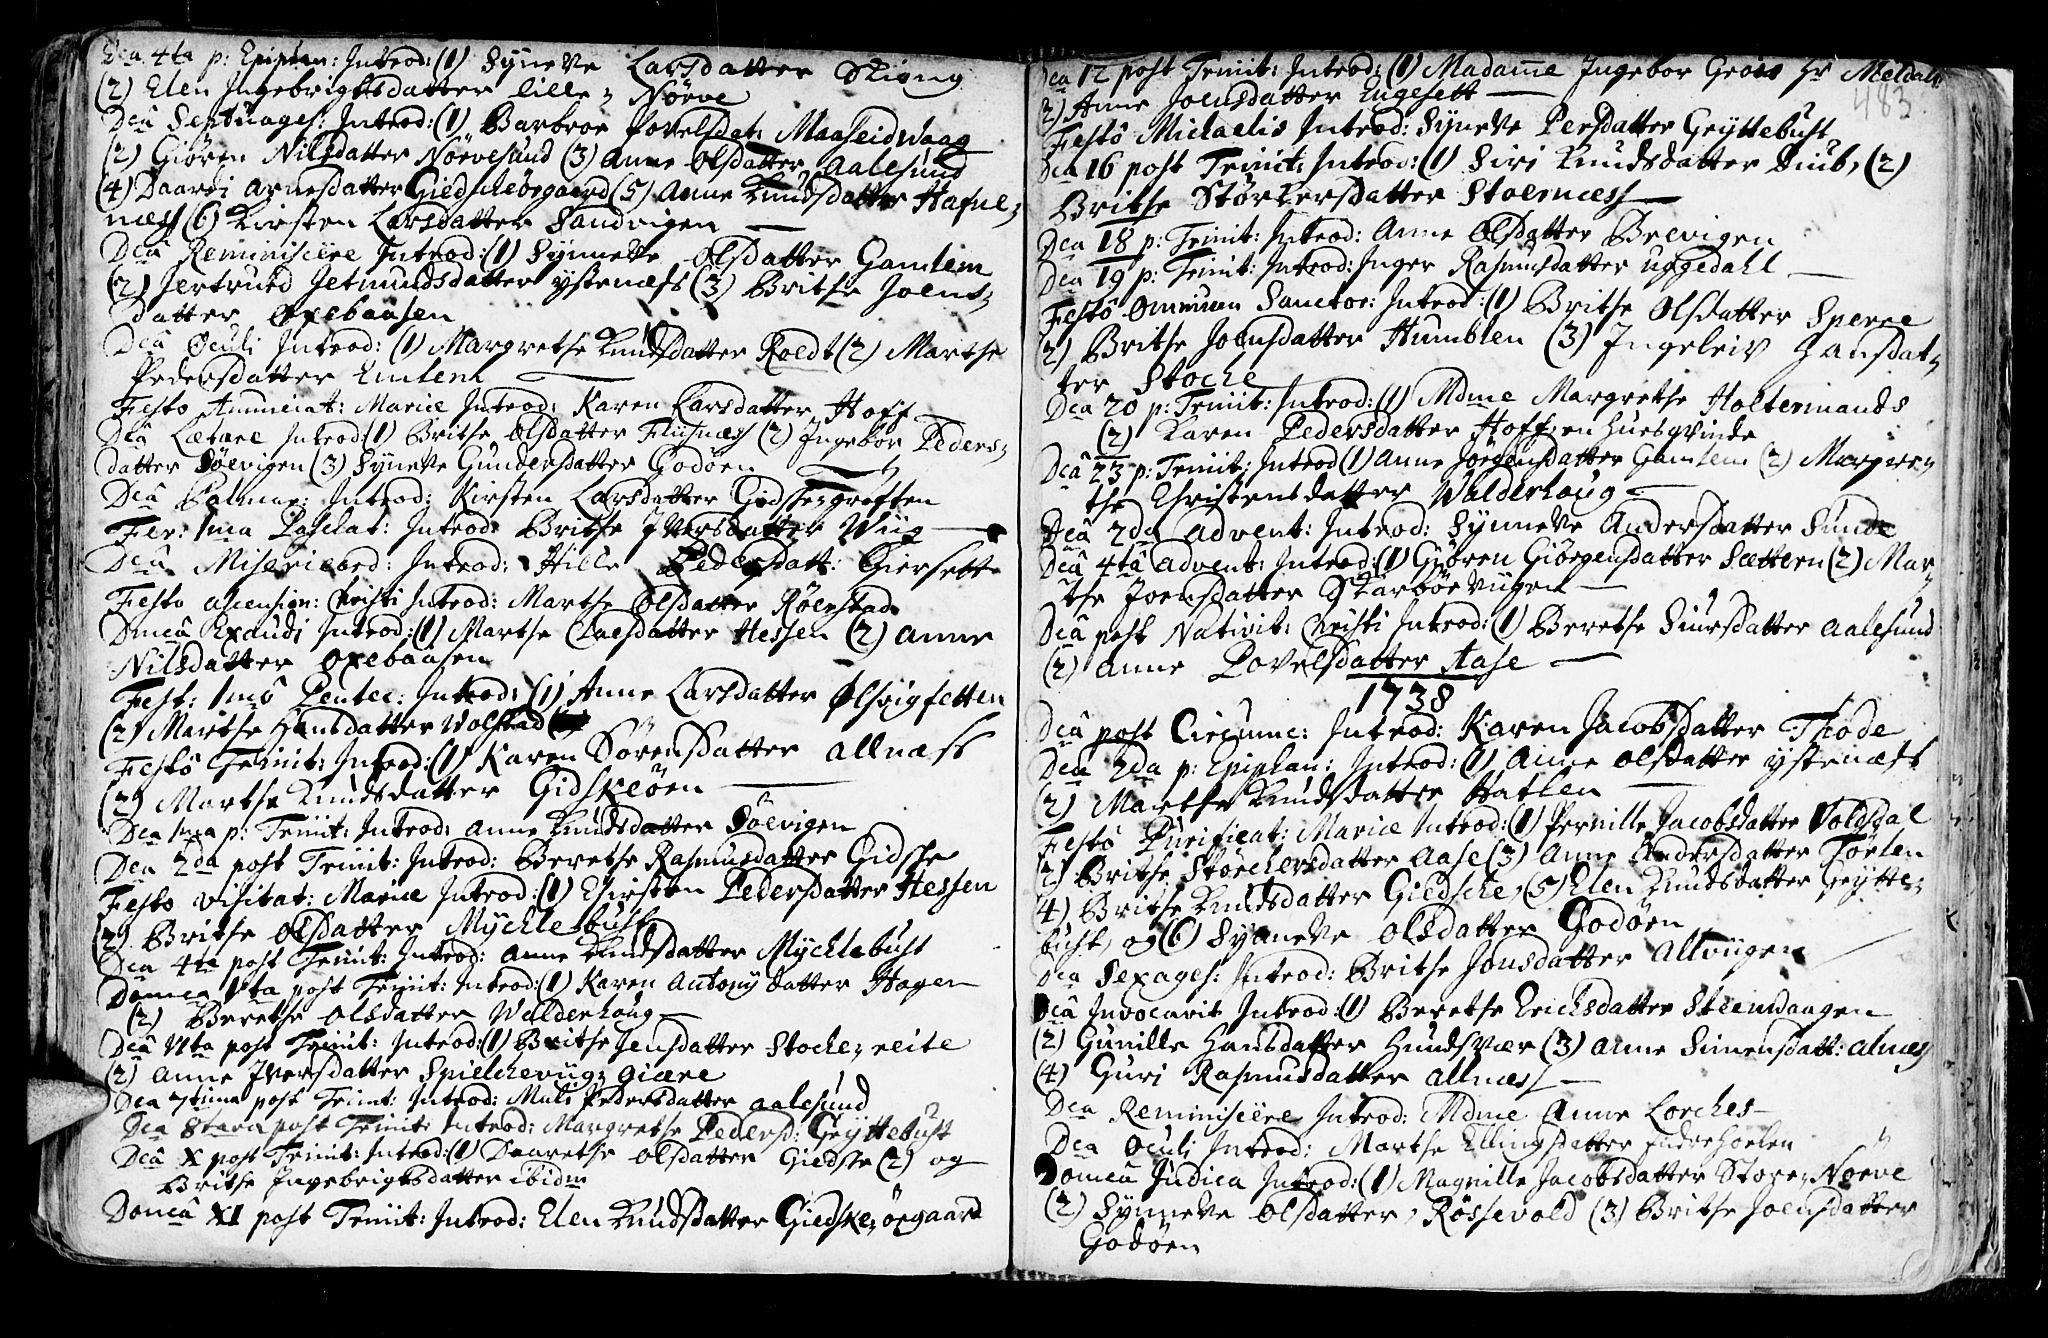 Dca 4ta p: Epiphan: Introd: (1) Syneve Larsdatter Skiong
(2) Elen Ingebrigtsdatter lille- Nörve
Dcâ Septuages: Introd: (1) Barbroe Povelsdat: Maaseidwaag
(2) Giören Nilsdatter Nörvesund (3) Anne Olsdatter Aalesund
(4) Daardi Arnesdatter Giedscheörgaard (5) Anne Knudsdatter Hafne-
næss (6) Kirsten Larsdatter Sandvigen
Dcâ Reminiscere Introd: (1) Synneve Olsdatter Gamlem
(2) Jertrued Jetmundsdatter ystenæss (3) Brithe Joens-
datter Oxebaasen
Dcâ Oculi Introd: (1) Margrethe Knudsdatter Roldt (2) Marthe
Pedersdatter Emlem
Festo Annunciat: Mariæ Introd: Karen Larsdatter Hoff
Dcâ Lætare Introd (1) Brithe Olsdatter Fliisnæss (2) Ingebor Peders-
datter Söevigen (3) Syneve Gundersdatter Godöen
Dcâ Palmar: Introd: Kirsten Larsdatter Gidsche-grofften
Fer: 1ma Paschat: Introd: Brithe Iversdatter Wiig
Dcâ Misericord: Introd: Hille Pedersdatt: Giersett
Festo ascension: Christi Introd: Marthe Olsdatter Röenstad
Dmcâ Exaudi Introd: (1) Marthe Claesdatter Hessen (2) Anne
Nilsdatter Oxebaasen
Fest: 1mô Pentec: Introd: (1) Anne Larsdatter Ølsvigfetten
(2) Marthe Hansdatter Wolstad
Festô Trinit: Introd: (1) Karen Sörensdatter Allnæss
(2) Marthe Knudsdatter Gidskeöen
Dca 1ma p: Trinit: Introd: Anne Knudsdatter Söevigen
Dca 2da post Trinit: Introd: Berethe Rasmusdatter Gidske
Festo visitat: Mariæ Introd: (1) Chirsten Pedersdatter Hessen
(2) Brithe Olsdatter Mychlebust
Dca 4ta post Trinit: Introd: Anne Knudsdatter Mychlebust
Domca Vta post Trinit: Introd: (1) Karen Antonij datter Hagen
(2) Berethe Olsdatter Walderhoug
Dcâ VIta post Trinit: Introd: (1) Brithe Jensdatter Stoche-reite
(2) Anne Iversdatter Spielcheviig- giære
Dca 7tima post Trinit: Introd: Mali Pedersdatter Aalesund
Dca 8tava post Trinit: Introd: Margrethe Pedersd: Gryttebust
Dcâ X post Trinit: Introd: (1) Daarethe Olsdatter Giedske (2) og
Brithe Ingebrigtsdatter ibidm
Domcâ XI post Trinit: Introd: Elen Knudsdatter Giedske-örgaard
Dca 12 post Trinit: Introd: (1) Madame Ingebor Hr Meldals
483
2) Anne Joensdatter Engesett
Festô Michaelis Introd: Syneve Persdatter Gryttebust
Dca 16 post Trinit: Introd: (1) Siri Knudsdatter Diub, (2)
Brithe Störkersdatter Stoernæss
Dca 18 p: Trinit: Introd: Anne Olsdatter Brevigen
Dca 19 p: Trinit: Introd: Inger Rasmusdatter uggedahl
Festô Omnium Sanctor: Introd: (1) Brithe Olsdatter Sperre
2) Brithe Joensdatter Humblen (3) Ingeleiv Hansdat-
ter Stoche
Dca 20 p: Trinit: Introd: (1) Mdme Margrethe Holtermands
(2) Karen Pedersdatter Hoff en Huusqvinde
Dcâ 23 p: Trinit: Introd (1) Anne Jörgensdatter Gamlem (2) Margre-
the Christensdatter Walderhoug
Dcâ 2da Advent: Introd: Synneve Andersdatter Sunde
Dcâ 4tâ Advent: Introd: (1) Giören Giörgensdatter Sættern (2) Mar-
the Joensdatter Skarbövigen
Dcâ post Nativit: Christi Introd: (1) Berethe Siursdatter Aalesund
(2) Anne Povelsdatter Aase
1738
Dcâ post Circumc: Introd: Karen Jacobsdatter Thode
Dca 2da p: Epiphan: Introd: (1) Anne Olsdatter ystenæss
(2) Marthe Knudsdatter Hatlen
Festô Purificat: Mariæ Introd: (1) Pernille Jacobsdatter Voldsdal
2) Brithe Störchersdatter Aase (3) Anne Andersdatter Törlen
4) Brithe Knudsdatter Giedsche, (5) Elen Knudsdatter Grytte-
bust, og (6) Synneve Olsdatter Godöen
Dca Sexages: Introd: Brithe Jonsdatter Allviigen
Dcâ Invocavit Introd: (1) Berethe Erichsdatter Steensaagen
(2) Gunille Hansdatter Hundsvær (3) Anne Simensdatt: Alnæs
(4) Guri Rasmusdatter Allnæss
Dca Reminiscere Introd: Mdme Anne Lorches
Dca Oculi Introd: Marthe Ellingsdatter Endrehoelen
Domcâ Judica Introd: (1) Magnille Jacobsdatter Store-Norve
(2) Synneve Olsdatter, Rössevold (3) Brithe Joensdatter
Godöen